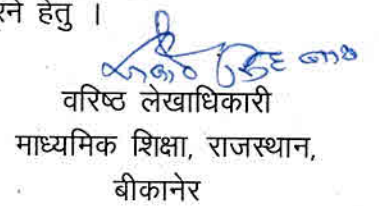 रने हेतु ।
वरिष्ठ लेखाधिकारी
माध्यमिक शिक्षा, राजस्थान,
बीकानेर